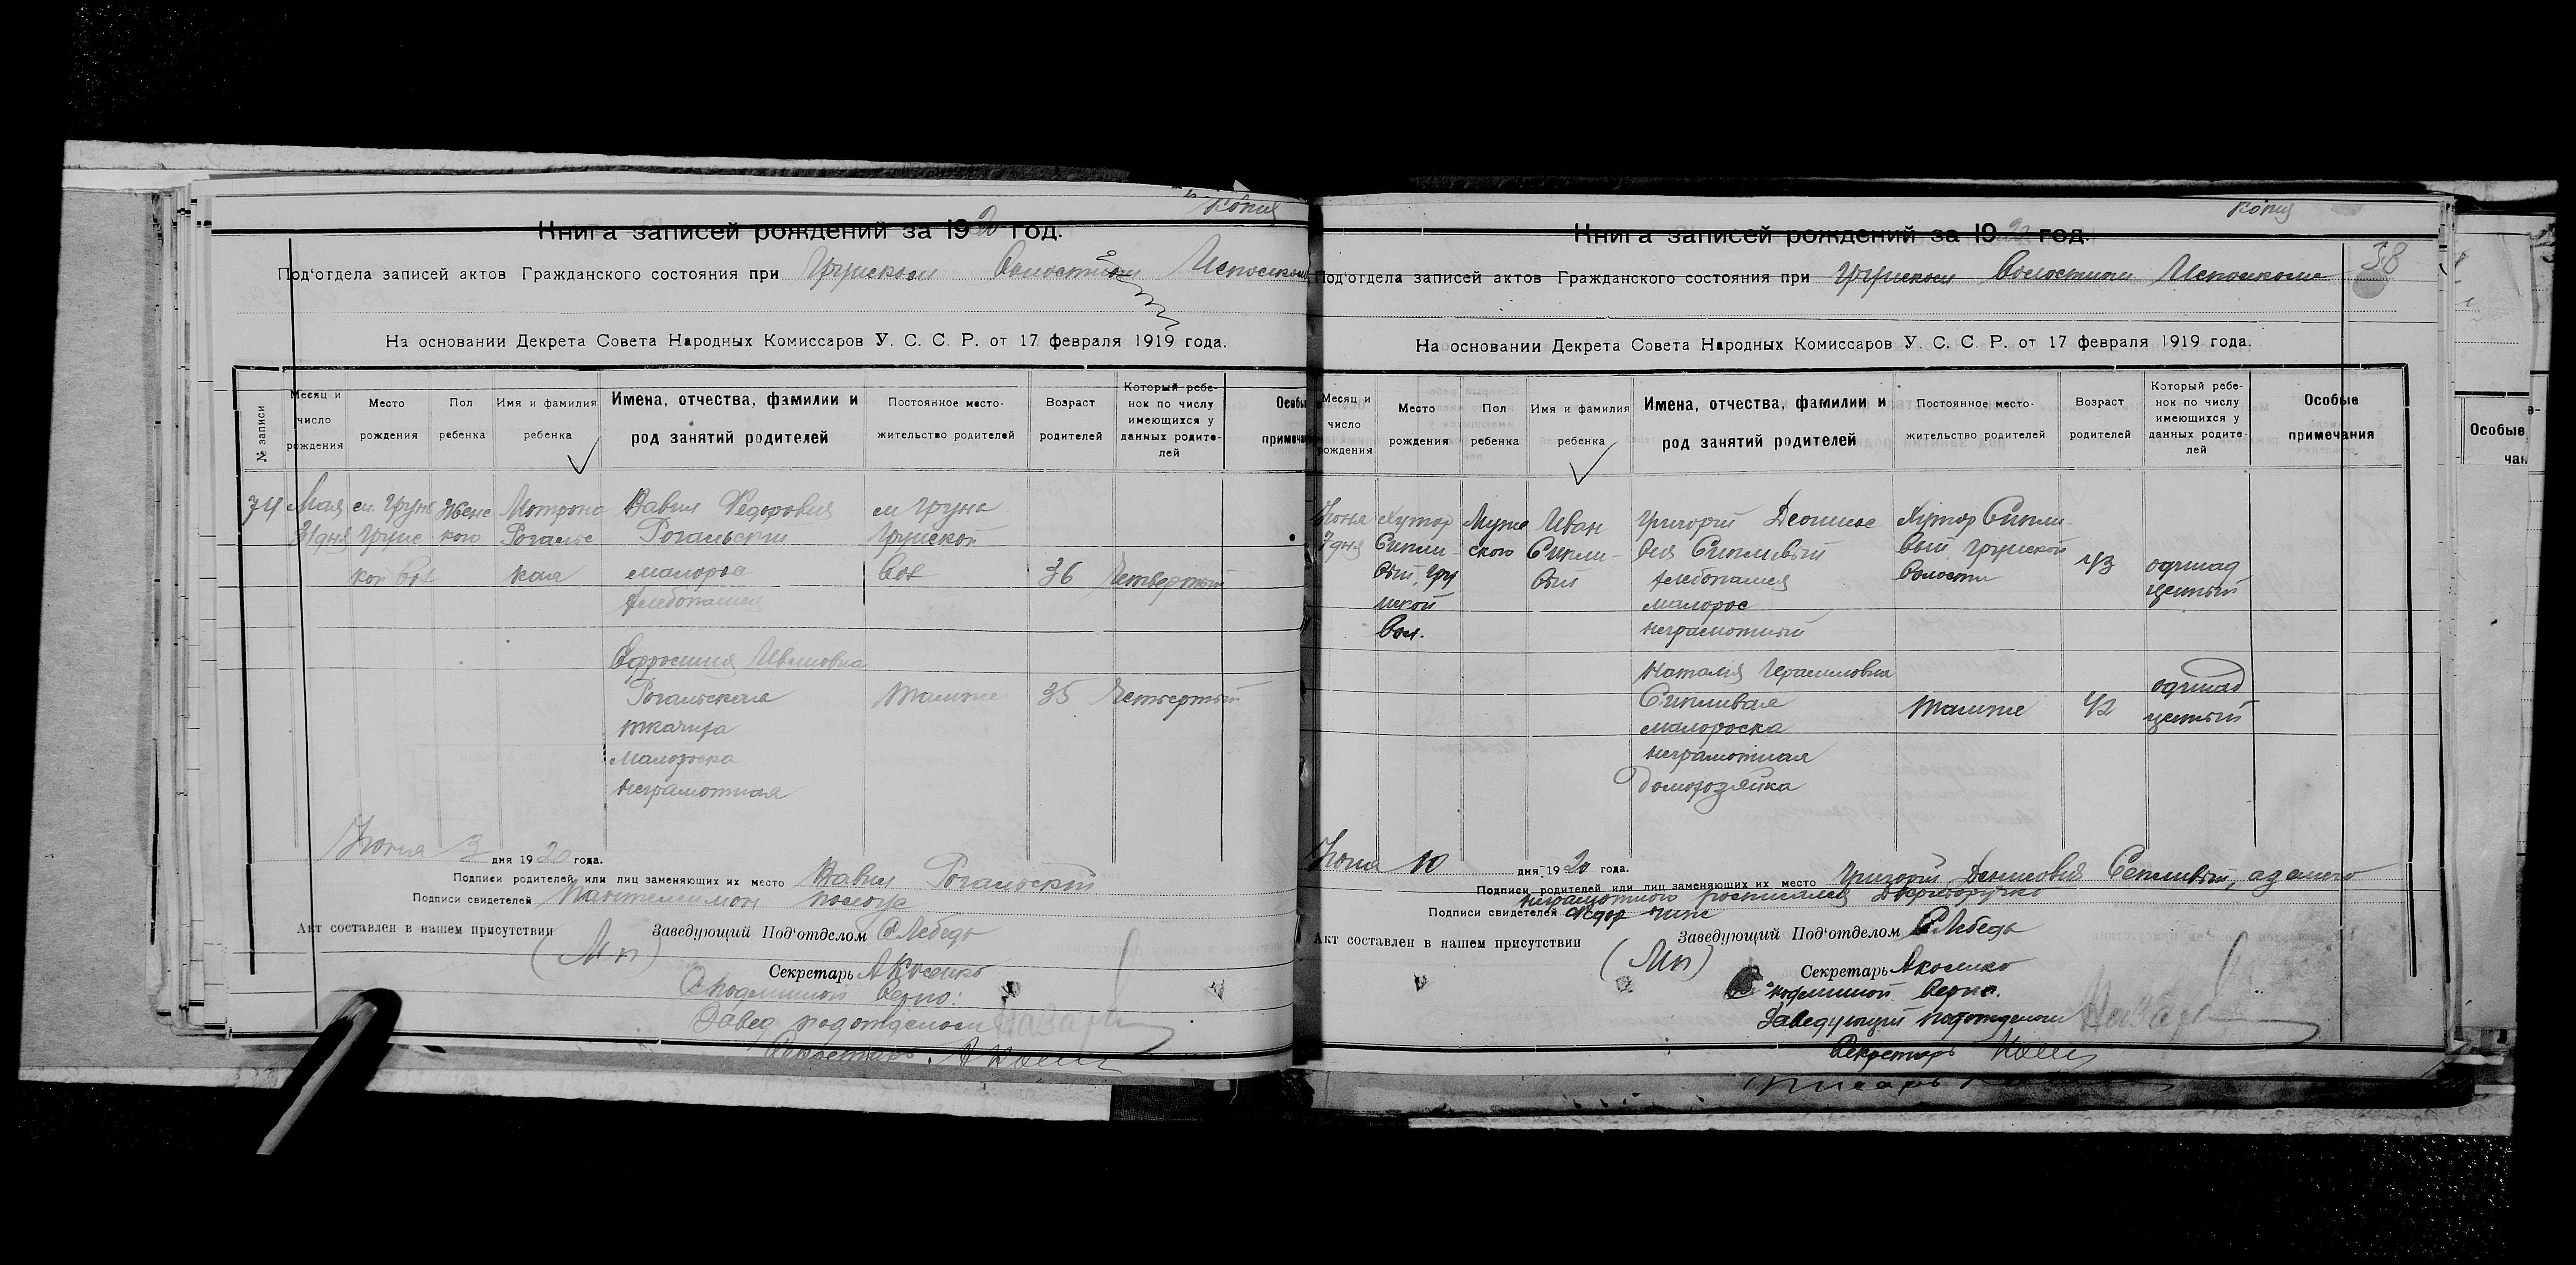 Копия
Книга записей рождений за 1920 год.
Под‘отдела записей актов Гражданского состояния при Грунском Волостном Исполком
На основании Декрета Совета Народных Комиссаров У. С. С. Р. от 17 февраля 1919 года.
№ записи
Месяц и число рождения
Место рождения
Пол ребенка
Имя и фамилия ребенка
Имена, отчества, фамилии и род занятий родителей
Постоянное место-жительство родителей
Возраст родителей
Который ребе-нок по числу имеющихся у данных родите-лей
Особы
примеча
74
Мая
31 дня
м. Грунь
Грунс
кой Вол
Женс
кого
Мотрона
Рогальс
кая
Павел Федорович
Рогальский
малорос
хлебопашец
м Грунь
Грунской
Вол
36
Четвертый
Ефросиния Ивановна
Рогальская
ткачиха
Малороска
неграмотная
тамже
35
Четвертый
Июня 3 дня 1920 года.
Подписи родителей или лиц заменяющих их место Павел Рогальский
Подписи свидетелей Пантелеимон
Акт составлен в нашем присутствии
(Мп)
Заведующий Под‘отделом Лебедь
Секретарь А Косенко
С подлинной верно:
Завед подотделом
Секретарь А
Копия
58
Книга записей рождений за 1920 год.
Под‘отдела записей актов Гражданского состояния при Грунском Волостном Исполкоме
На основании Декрета Совета Народных Комиссаров У. С. С. Р. от 17 февраля 1919 года.
Месяц и число рождения
Место рождения
Пол ребенка
Имя и фамилия ребенка
Имена, отчества, фамилии и род занятий родителей
Постоянное место-жительство родителей
Возраст родителей
Который ребе-нок по числу имеющихся у данных родите-лей
Особые примечания
Особые
чан
Июня
7 дня
Хутор
Сипли-
вый, Гру
нской
Вол.
Муже
ского
Иван
Сипли-
вый
Григорий Деонисо
вич Сипливый
хлебопашец
малорос
неграмотный
Хутор Сипли-
вый Грунской
Волости
43
одинад
цетый
Наталия Герасимовна
Сипливая
малороска
неграмотная
Домохозяйка
тамже
42
одинад
цетый
Июня 10 дня 1920 года.
Подписи родителей или лиц заменяющих их место Григорий Денисович Сепливый, а за него
неграмотного росписался
Подписи свидетелей Федор
Акт составлен в нашем присутствии
(Мп)
Заведующий Под‘отделом Лебедь
Секретарь А Косенко
С подлинной верно.
Заведующий подотделом
Секретарь